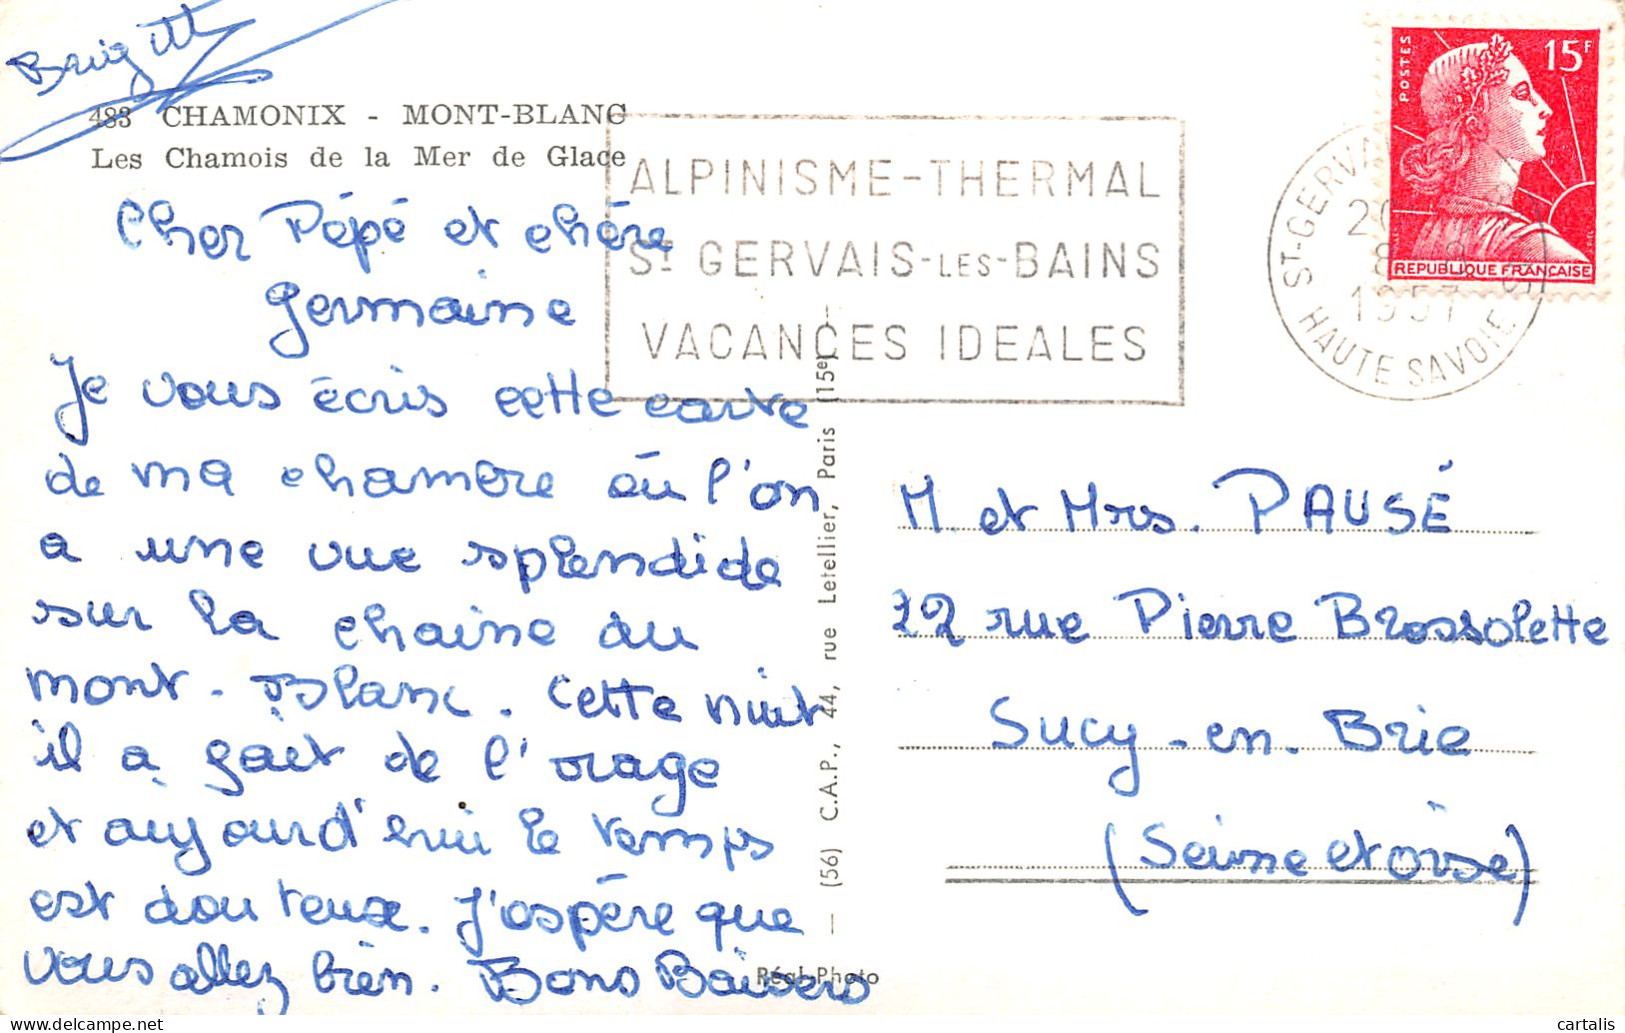 Brigitte
483 CHAMONIX - MONT-BLANC
Les Chamois de la Mer de Glace
Cher Pépé et chère
Germaine
Je vous écris cette carte
de ma chambre où l'on
a une vue splendide
sur la chaine du
mont-Blanc. Cette nuit
il a fait de l'orage
et aujourd'hui le temps
est douteux. J'espère que
vous allez bien. Bons Baisers
ALPINISME-THERMAL
St GERVAIS-LES-BAINS
VACANCES IDEALES
POSTES
15F
REPUBLIQUE FRANÇAISE
ST-GERVAIS
1957
HAUTE SAVOIE
(56) C.A.P., 44, rue Letellier, Paris (15e)
Réal-Photo
M. et Mrs. PAUSÉ
22 rue Pierre Brossolette
Sucy-en-Brie
(Seine et Oise)
cartalis